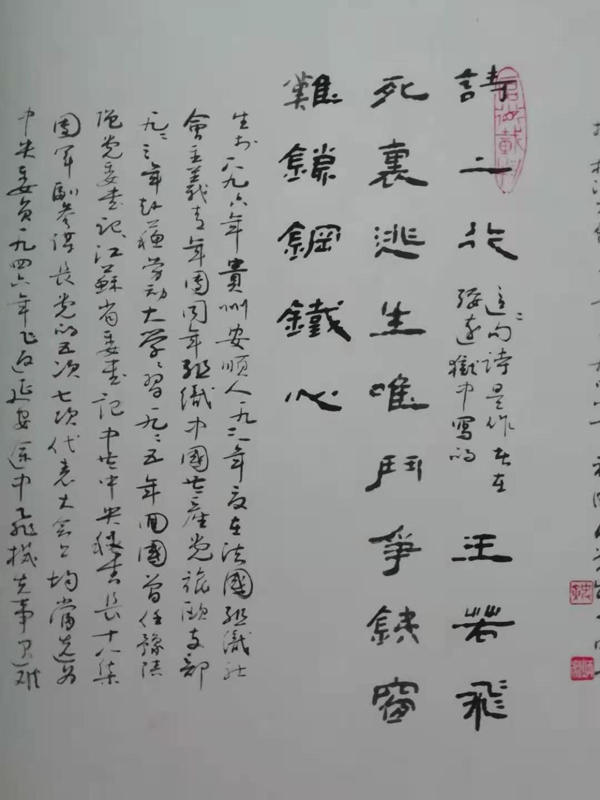 詩二行 王若飛
這二句詩是作者在
綏遠獄中寫的
死裏逃生唯鬥爭鐵窗
難鎖鋼鐵心
生於一八九六年貴州安順人一九二一年夏在法國組織社
會主義青年團同年組織中國共產党旅歐支部
一九二三年赴蘇勞动大學學習一九二五年回國曾任豫陝
區党委書記江蘇省委書記中共中央秘書長十八集
團軍副參谋長党的五次七次代表大会上均當选为
中央委员一九四六年飞返延安途中飛機失事遇难